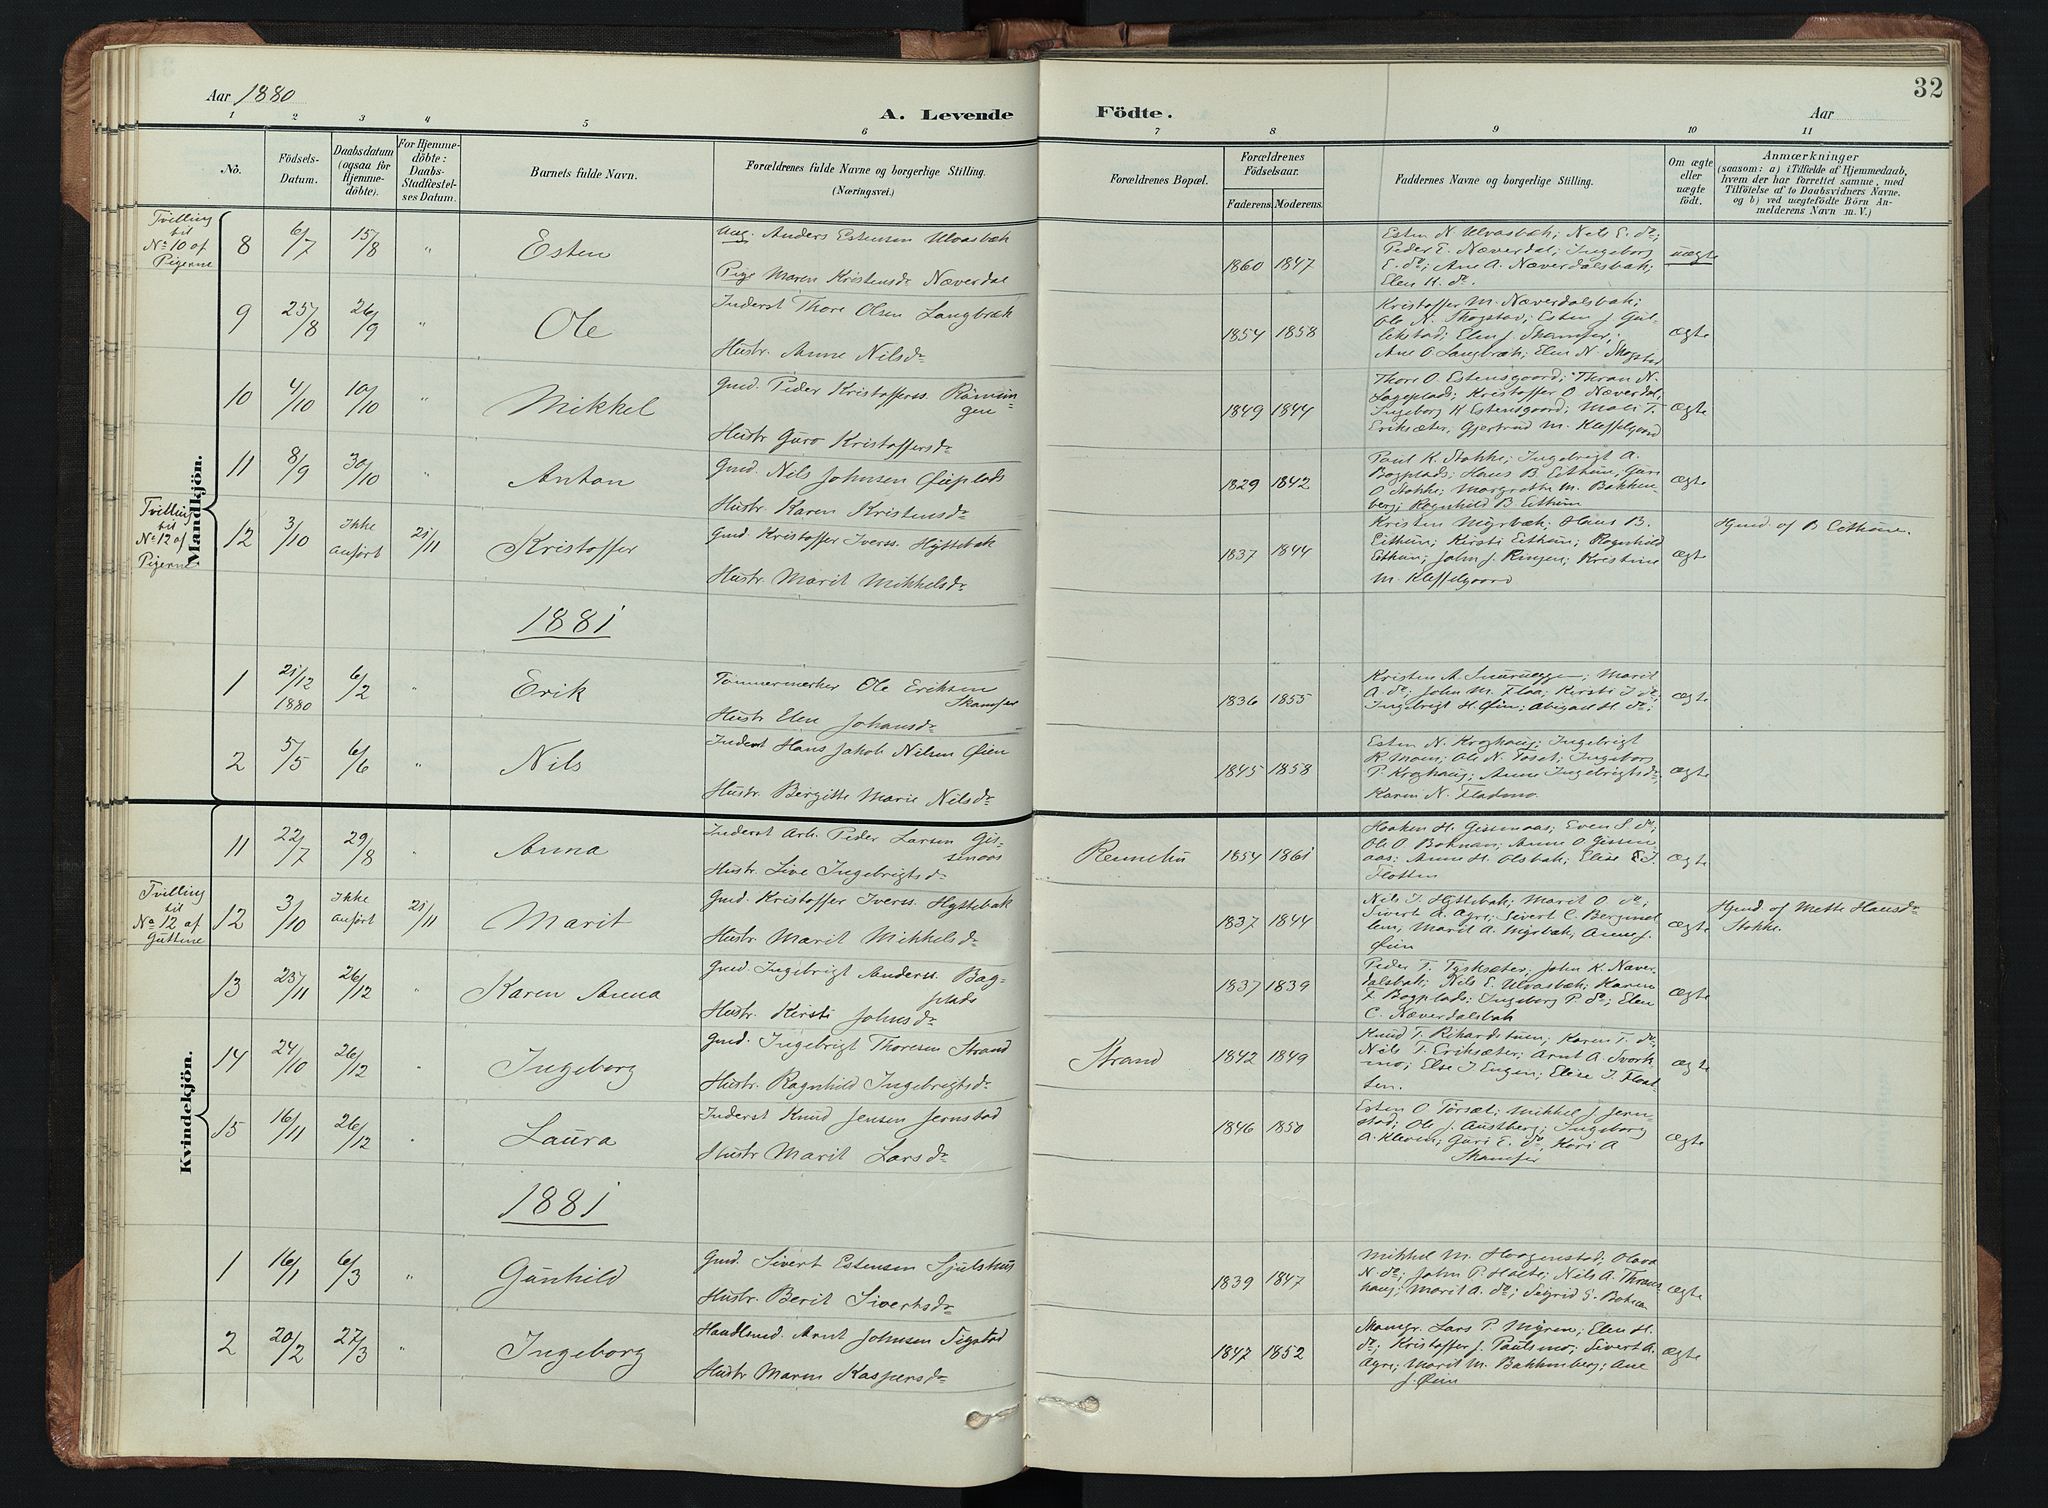 Aar 1880
A. Levende
Födte.
Aar
32
1 2 3 4 5 6 7 8 9 10 11
No.
Födsels-
Datum.
Daabsdatum
(ogsaa for
Hjemme-
döbte).
For Hjemme-
döbte:
Daabs-
Stadfæstel-
ses Datum.
Barnets fulde Navn.
Forældrenes fulde Navne og borgerlige Stilling.
(Næringsvei.)
Forældrenes Bopæl.
Forældrenes
Födselsaar.
Faderens. Moderens.
Faddernes Navne og borgerlige Stilling.
Om ægte
eller
uægte
födt.
Anmærkninger
(saasom: a) i Tilfælde af Hjemmedaab,
hvem der har forrettet samme, med
Tilföielse af to Daabsvidners Navne.
og b) ved uægtefödte Börn An-
melderens Navn m. V.)
Mandkjön.
Tvilling
til
No 10 af
Pigerne
8 6/7 15/8 " Esten
Ung. Anders Estensen Ulvasbæk
Pige Maren Kristensdr Næverdal
1860 1847
Esten N. Ulvasbæk; Nils E. do;
Peder E. Næverdal; Ingeborg
E. do; Ane A. Næverdalsbak;
Elen K. do.
uægte
9 25/8 26/9 " Ole
Inderst Thore Olsen Langbræk
Hustr. Anne Nilsdr
1854 1858
Kristoffer M. Næverdalsbak;
Ole N. Skogstad; Esten J. Gul-
likstad; Elen J. Skamfer;
Ane O. Langbræk; Elen N. Skogstad
ægte
10 4/10 10/10 " Mikkel
Gmd. Peder Kristofferss.
Hustr Guro Kristoffersdr
1849 1844
Thore O. Estensgaard; Thran N.
Lageplads; Kristoffer O. Næverdal,
Ingeborg K Estensgaard; Mali T.
Eriksæter, Gjertrud M. Kleffelgaard
ægte
11 8/9 30/10 " Anton
Gmd. Nils Johnsen Øieplads
Hustr. Karen Kristensdr
1829 1842
Paul K. Stokke; Ingebrigt A.
Bogplads; Hans B. Eithun, Guri
O Stokke; Margrethe M. Bakken-
berg; Ragnhild B Eithun
ægte
Tvilling
til
No 12 af
Pigerne
12 3/10 Ikke
anført 21/11 Kristoffer
Gmd. Kristoffer Iverss. Hyttebak
Hustr. Marit Mikkelsdr
1837 1844
Kristen Myrbæk; Hans B.
Eithun; Kirsti Eithun; Ragnhild
Eithun; John J. Ringen; Kristine
M. Kleffelgaard
ægte
Hjmd. af B Eithun.
1881
1 21/12
1880 6/2 " Erik
Tømmermerker Ole Eriksen
Skamfer
Hustr Elen Johansdr
1836 1855
Kristen A. Snuruegge; Marit
A. do; John M. Floa; Kirsti J do;
Ingebrigt H. Øien; Abigael H. do;
ægte
2 5/5 6/6 " Nils
Inderst Hans Jakob Nilsen Øien
Hustr. Bergitte Marie Nilsdr
1845 1858
Esten N. Kroghaug; Ingebrigt
R. Moen; Ole N. Toset; Ingeborg
P. Kroghaug; Anne Ingebrigtsdr
Karen N. Fladmo.
ægte
Kvindekjön.
11 22/7 29/8 " Anna
Inderst Arb. Peder Larsen Gis-
smaas
Hustr. Sive Ingebrigtsdr
Rennebu
1854 1861
Haaken H. Gissmaas; Even S. do;
Ole O. Boknan; Anne O. Gissin
aas; Anne H. Olsbak; Elise E.J.
Flotten
ægte
Tvilling
til
No 12 af
Guttene
12 3/10 Ikke
anført 21/11 Marit
Gmd. Kristoffer Iverss. Hyttebak
Hustr. Marit Mikkelsdr
1837 1844
Nils I. Hyttebak; Marit O. do;
Sivert A. Agre; Sivert C. Bergmel
lem, Marit A. Myrbæk, Anne J.
Øien
ægte
Hjmd af Mette Hansdr
Stokke.
13 23/11 26/12 " Karen Anna
Gmd. Ingebrigt Anderss. Bog-
plads
Hustr. Kirsti Johnsdr
1837 1839
Peder T. Tysksæter; John K. Næver-
dalsbak; Nils E. Ulvasbæk; Karen
F. Bogplads; Ingeborg P. do; Elen
C. Næverdalsbak
ægte
14 24/10 26/12 " Ingeborg
Gmd. Ingebrigt Thoresen Strand
Hustr. Ragnhild Ingebrigtsdr
Strand
1842 1849
Knud T. Rikardstuen; Karen T. do;
Nils T. Eriksæter; Arnt A. Svork-
mo; Else I Engen; Elise I. Flaat-
ten.
ægte
15 16/11 26/12 " Laura
Inderst Knud Jensen Jernstad
Hustr Marit Larsdr
1846 1850
Esten O. Torsæt; Mikkel J. Jern-
stad; Ole J. Austberg; Ingeborg
A. Kleven; Guri E. do, Kari A
Skamfer
ægte
1881
1 16/1 6/3 " Gunhild
Gmd. Sivert Estensen Sjulshus
Hustr. Berit Sivertsdr
1839 1847
Mikkel M. Haagenstad; Olava
N. do; John P. Halte; Nils A. Thrans-
haug; Marit A. do; Sigrid S. Boknan
ægte
2 20/2 27/3 " Ingeborg
Handlsmd. Arnt Johnsen Sigstad
Hustr Maren Kaspersdr
1847 1852
Skomgr. Lars P. Myren; Elen H.
do; Kristoffer J. Paulsmo; Sivert A.
Agre; Marit M. Bakkenberg; Ane
J. Øien
ægte